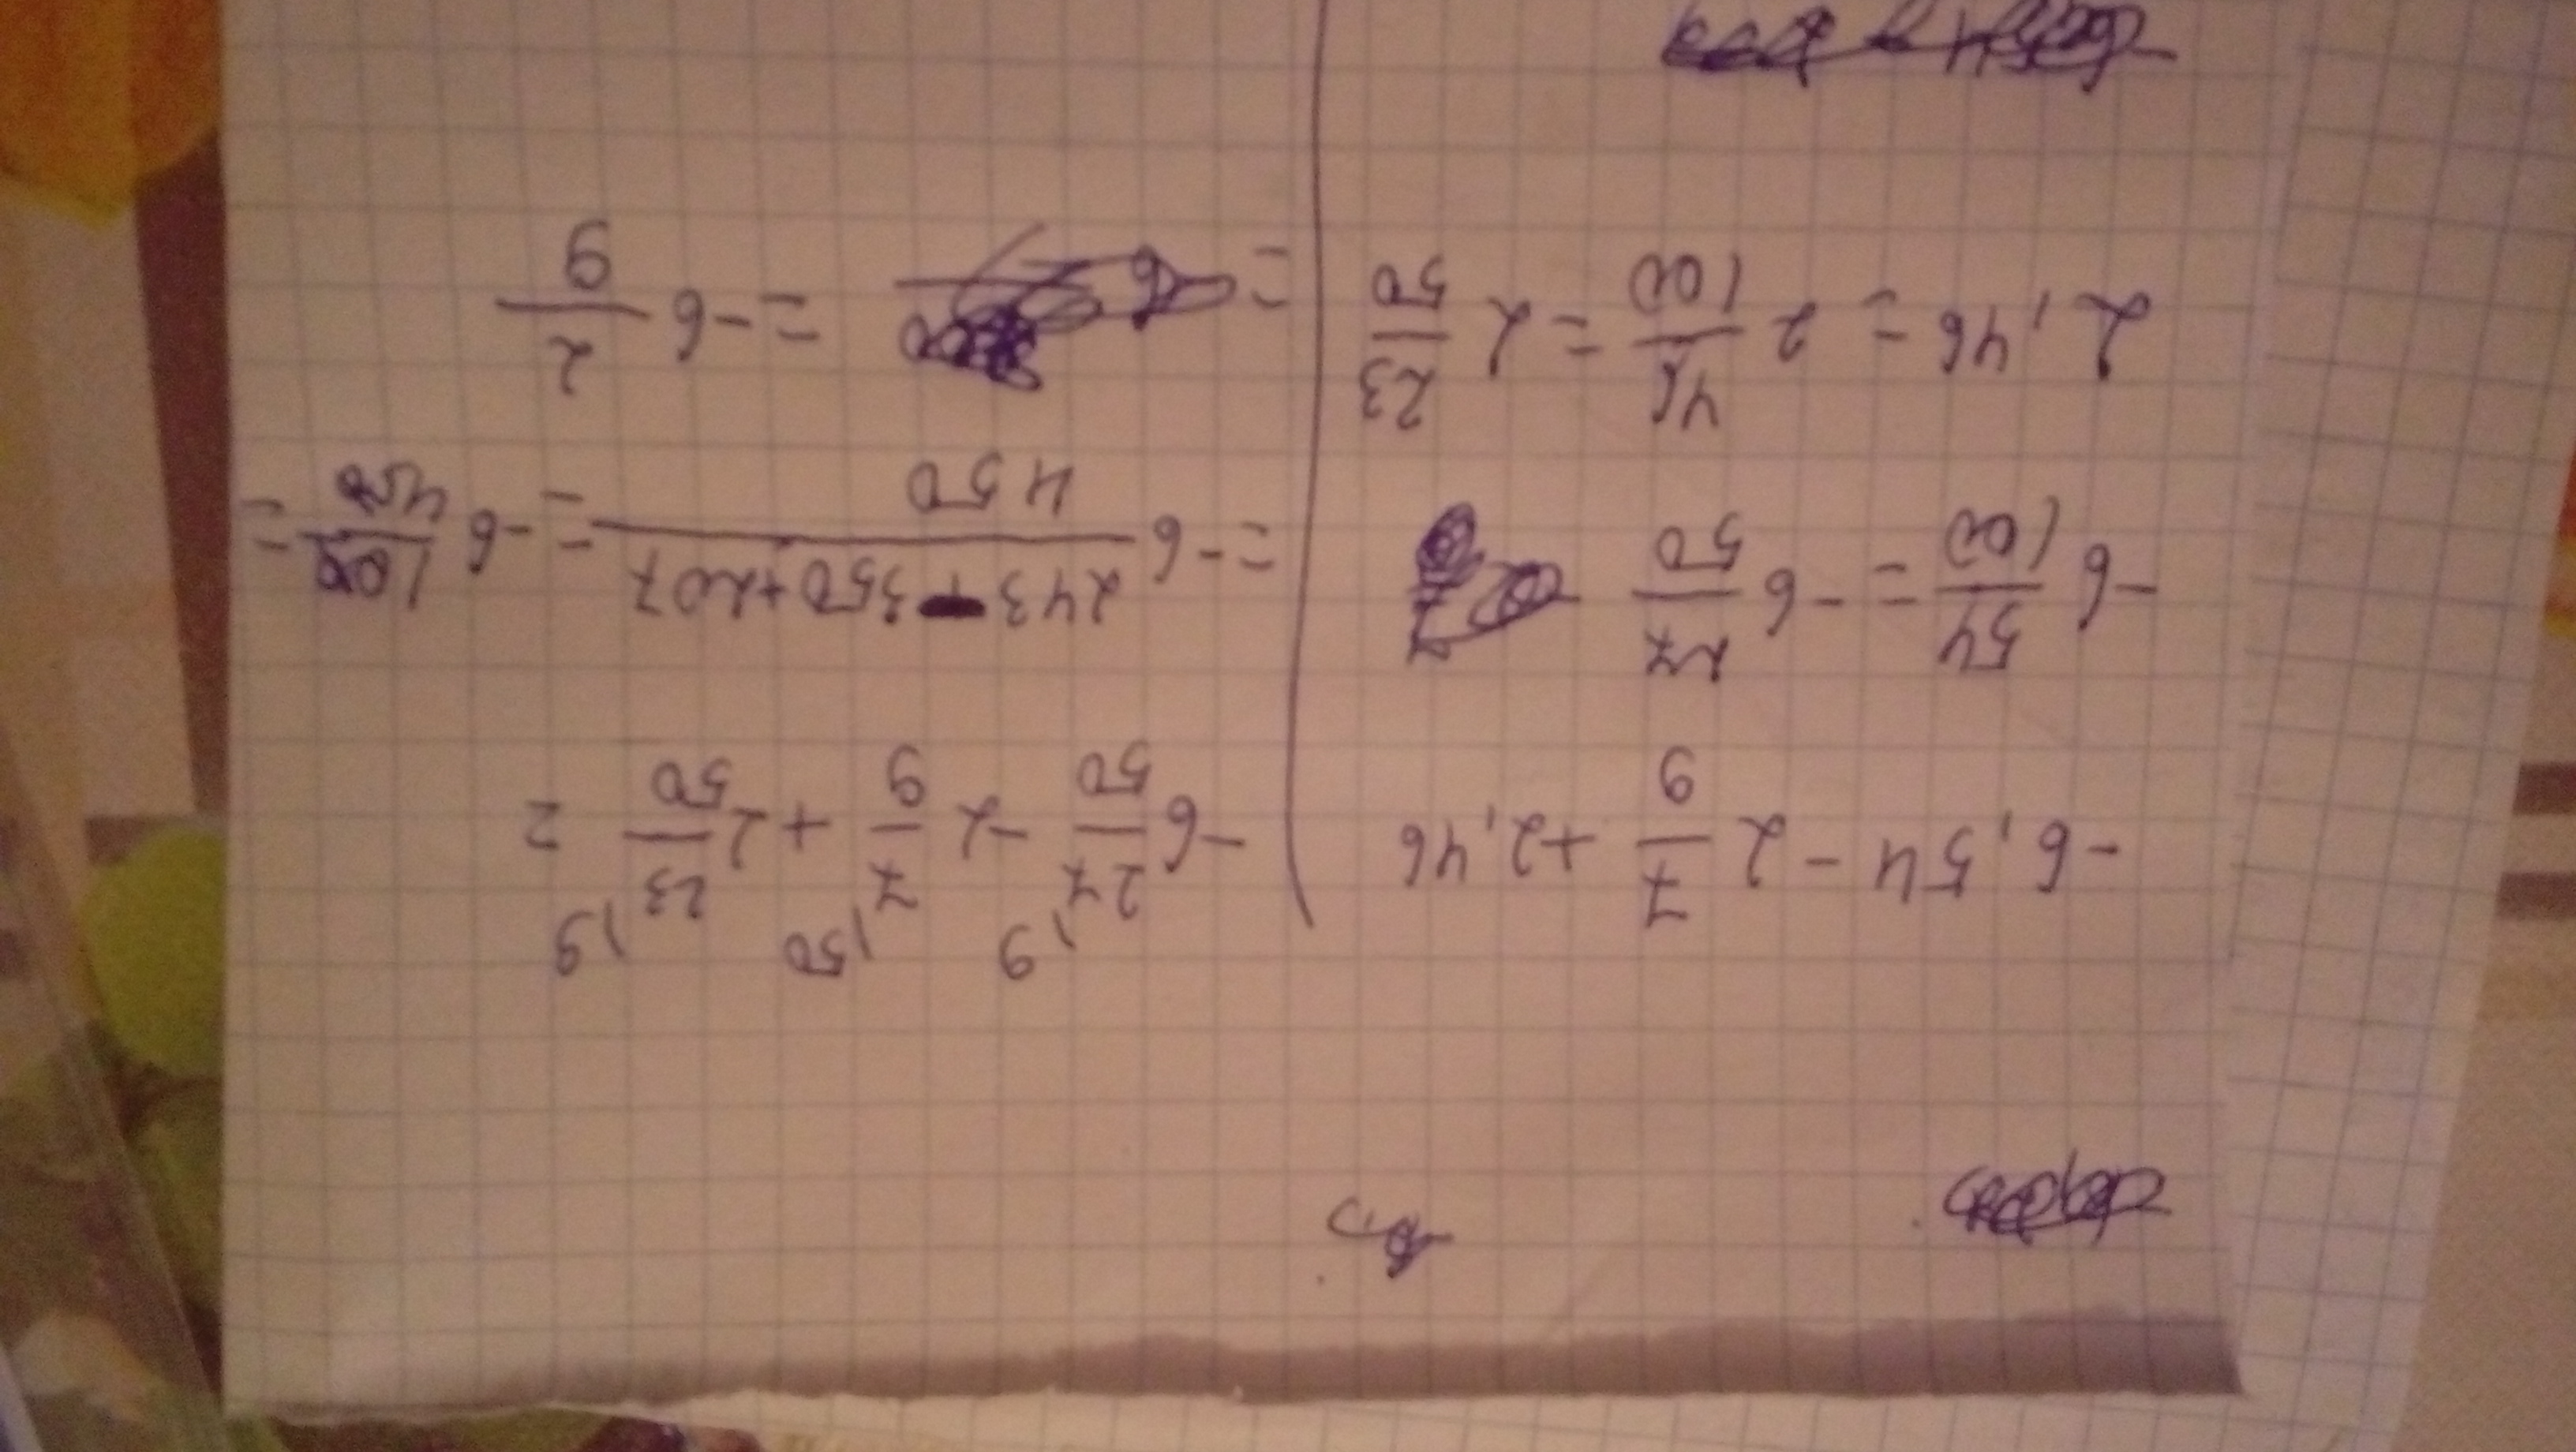 -6,54 - 2 7/9 + 2,46
-6 54/100 = -6 27/50
2,46 = 2 46/100 = 2 23/50
-6 27/50 \9 - 2 7/9 \50 + 2 23/50 \9 =
= -6 243+350+207/450 = -6 100/450 =
= = -6 2/9